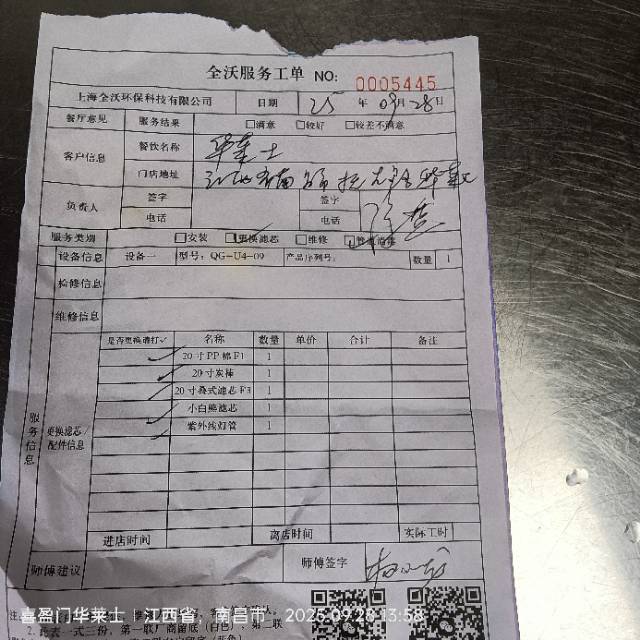 全沃服务工单 NO: 0005445
上海全沃环保科技有限公司 日期 25 年 09 月 28 日
餐厅意见 服务结果 □满意 □较好 □较差不满意
客户信息 餐饮名称 华莱士
门店地址 江西省南昌
负责人 签字 签字
电话 电话
服务类别 □安装 □更换滤芯 □维修 □
设备信息 设备一 型号：QG-U4-09 产品序列号： 数量 1
检修信息
维修信息
服务信息 更换滤芯/配件信息
是否更换请打✓ 名称 数量 单价 合计 备注
✓ 20寸PP棉F1 1
✓ 20寸炭棒 1
✓ 20寸叠式滤芯F3 1
✓ 小白鲸滤芯 1
✓ 紫外线灯管 1
进店时间 离店时间 实际工时
师傅建议 师傅签字
喜盈门华莱士 江西省，南昌市 2025.09.28 13:58
2.此表一式三份，第一联厂商留底（白联） 第二联